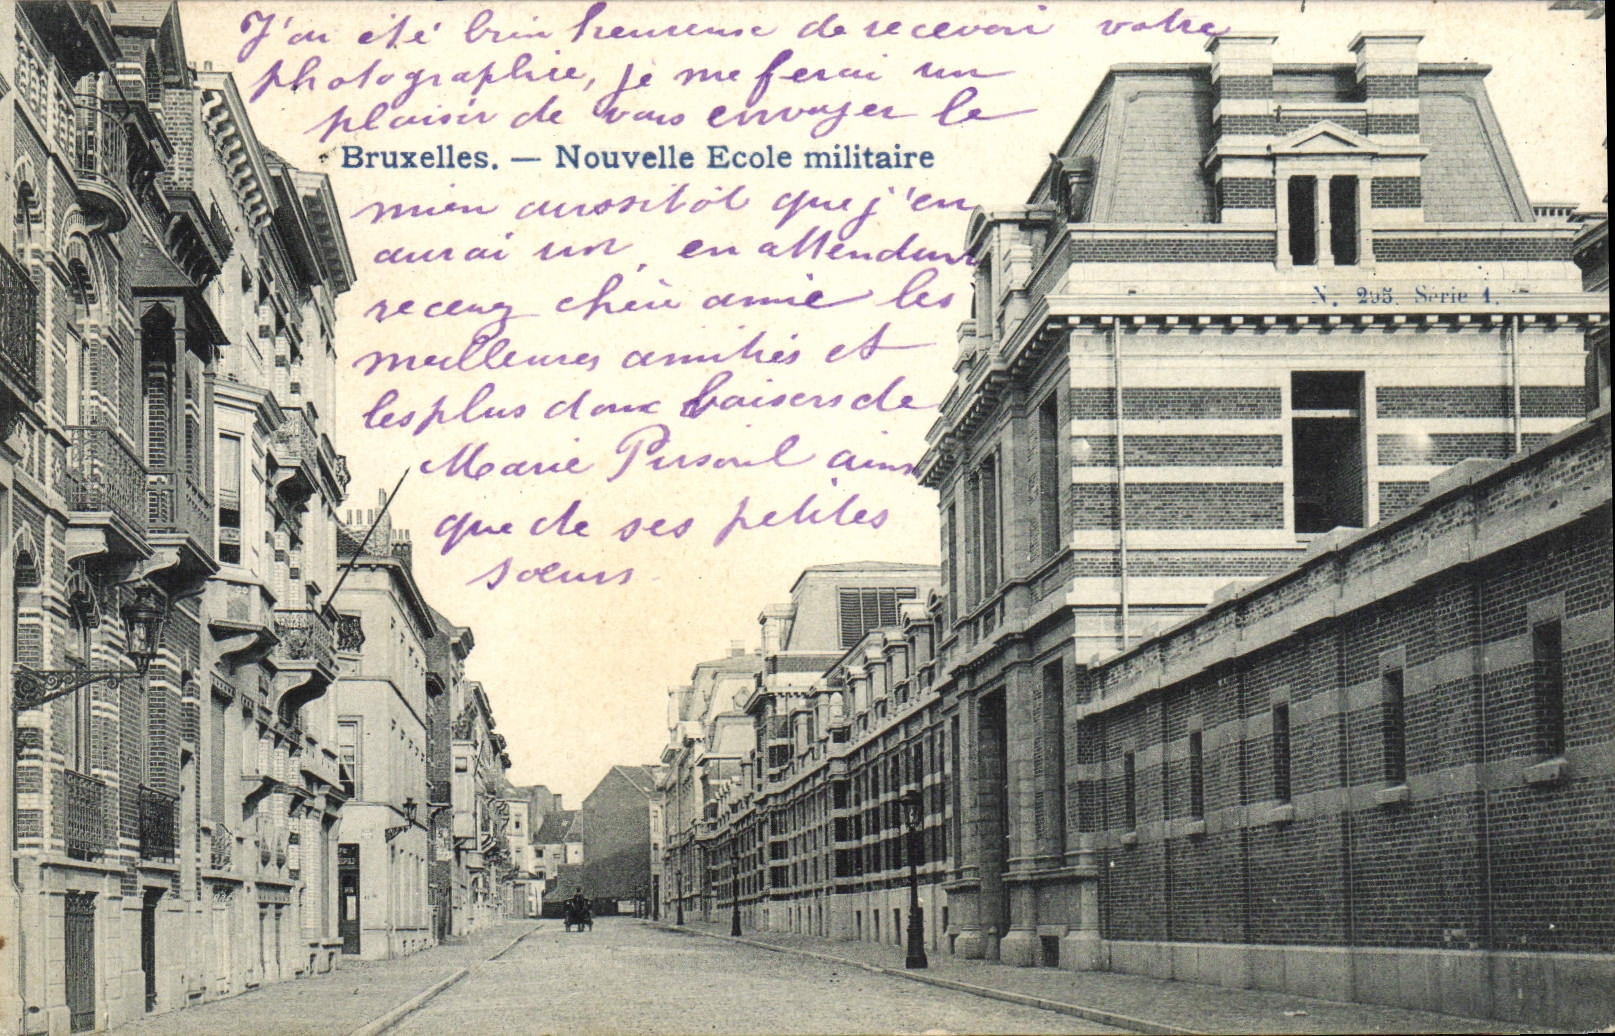 J'ai été bien heureuse de recevoir votre
photographie, je me ferai un
plaisir de vous envoyer le
Bruxelles. — Nouvelle Ecole militaire
mien aussitôt que j'en
aurai un, en attendant
recevez chère amie les
N. 295. Serie 1.
meilleures amitiés et
les plus doux baisers de
Marie ainsi
que de ses petites
sœurs